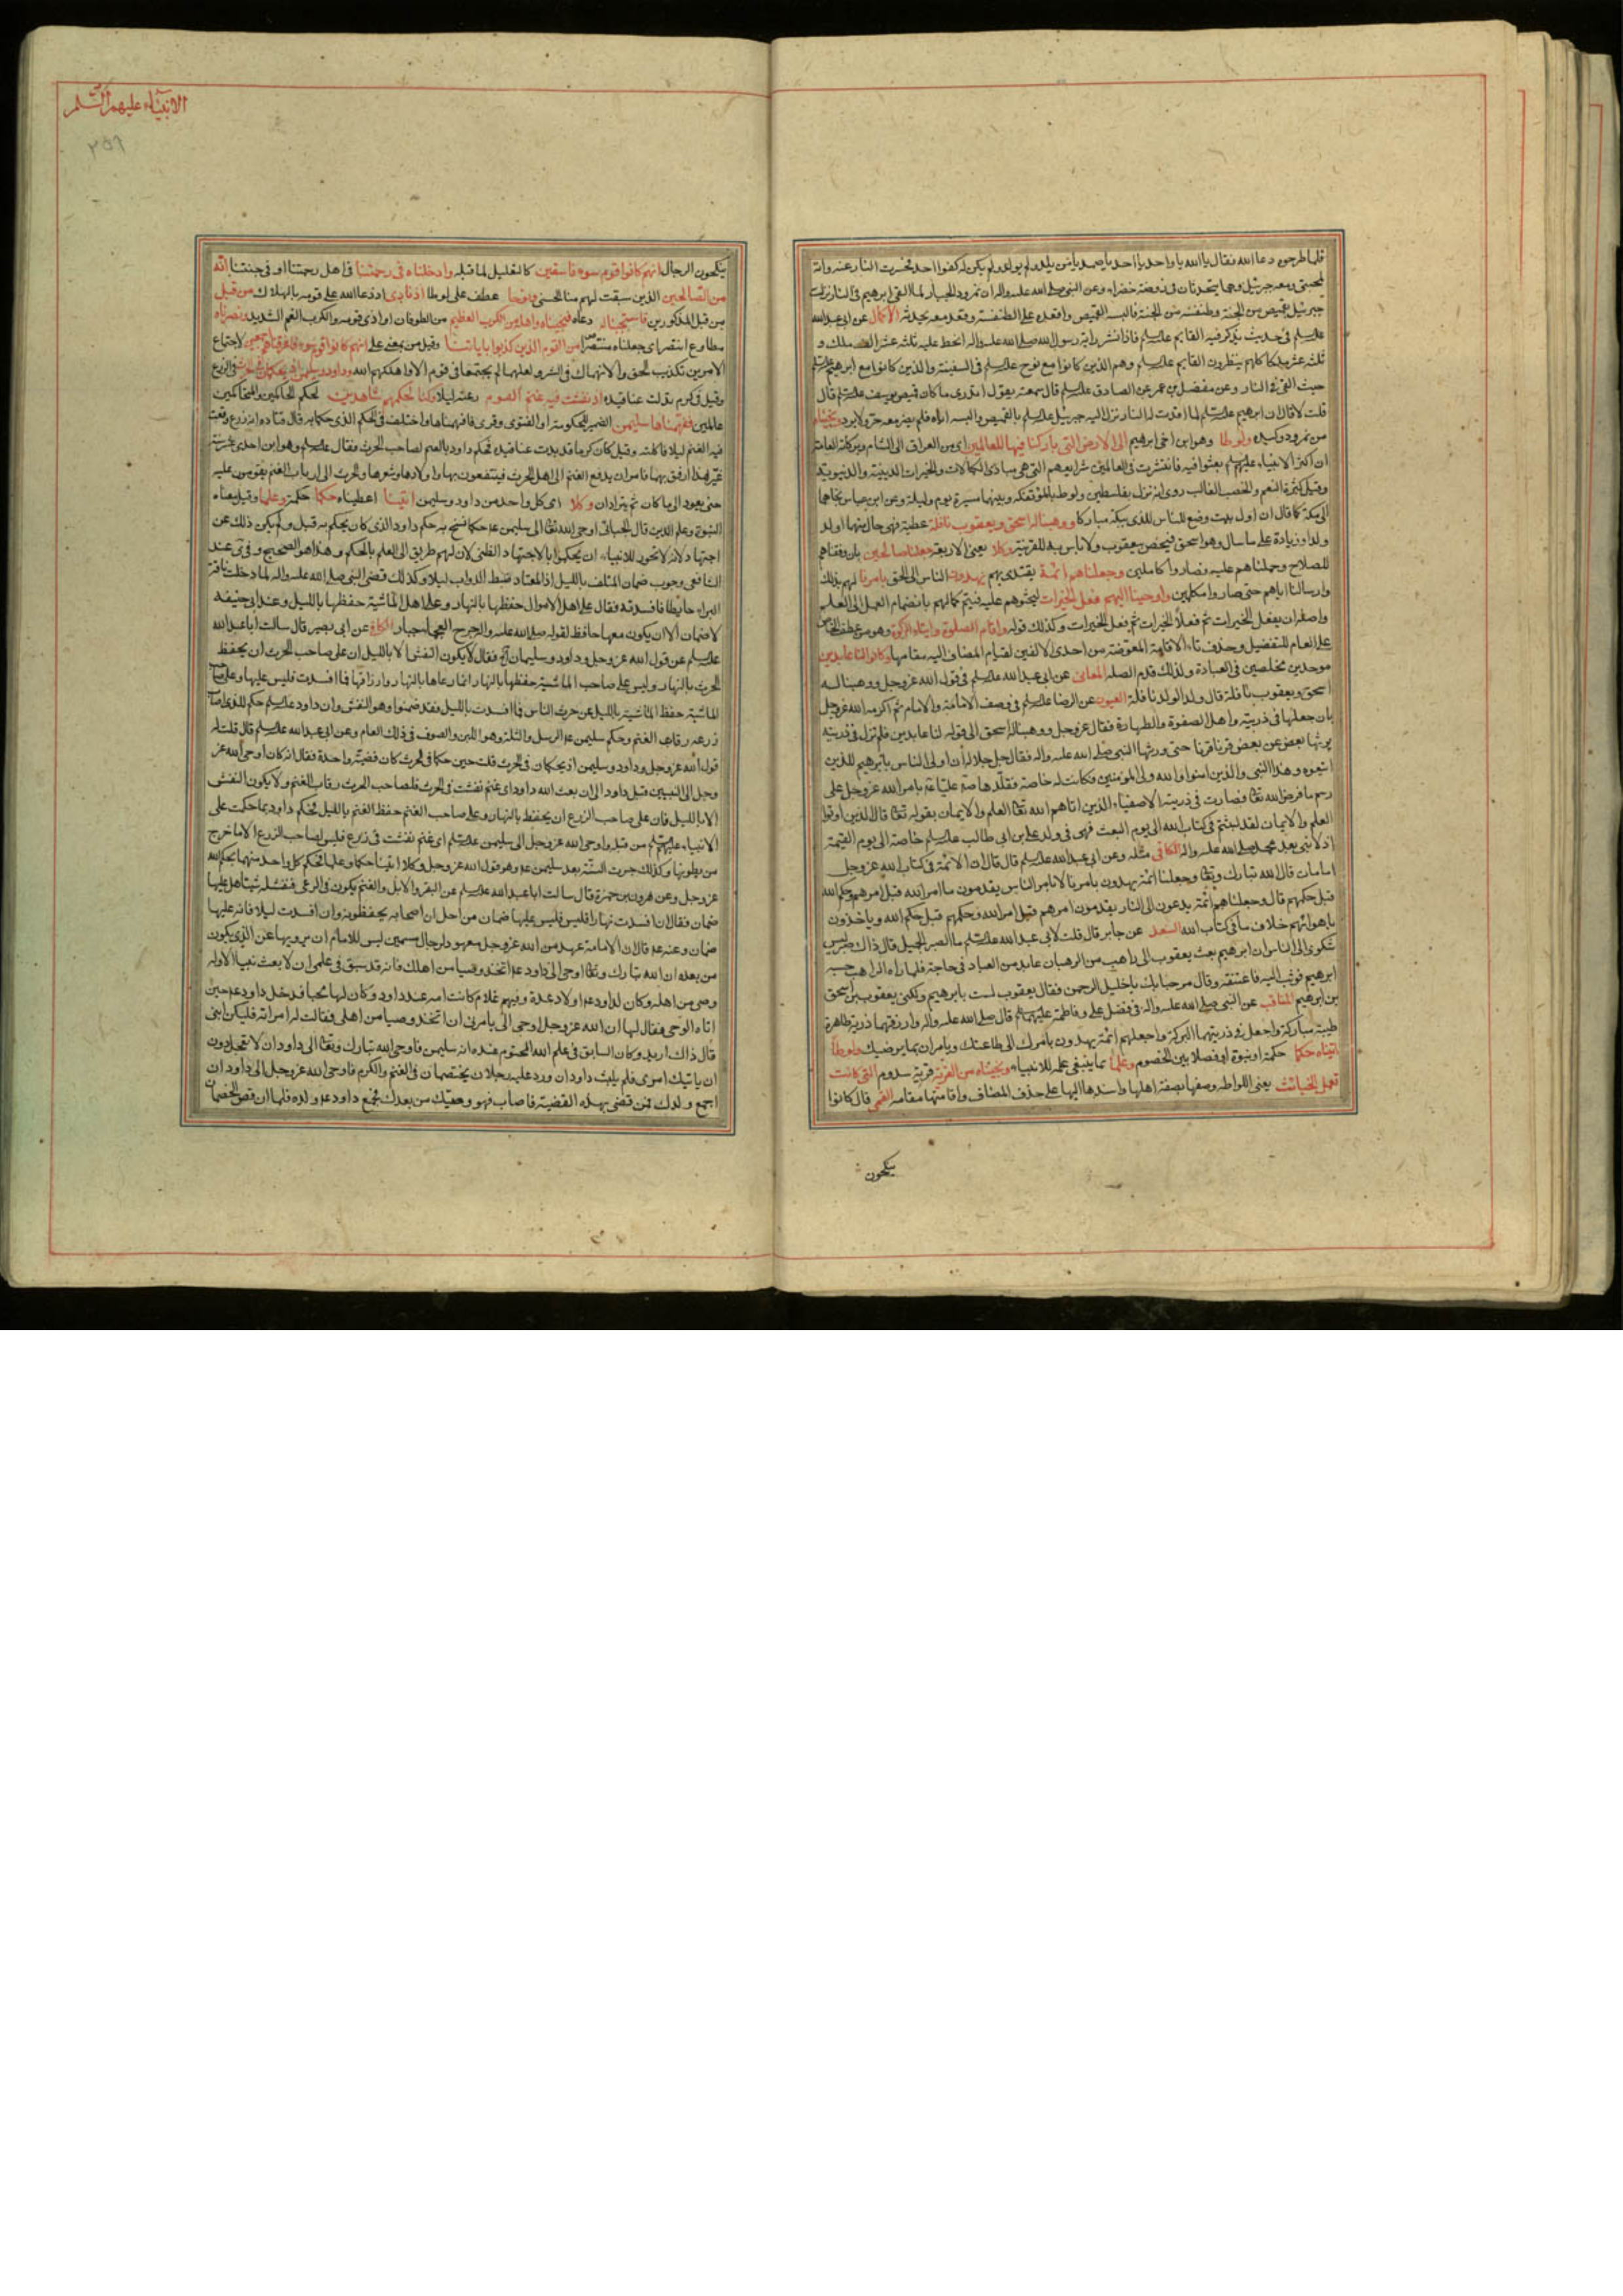 فلما طرحوه دعا الله فقال يا الله يا واحد يا احد يا صمد يا من لم يلد ولم يولد ولم يكن له كفوا احد فحسرت النار عنه وانه
لمحتبى ومعه جبرئيل وهما يتحدثان فى روضة خضراء وعن النبى صلى الله عليه واله ان نمرود الجبار لما القى ابرهيم فى النار نزل
جبرئيل بقميص من الجنة وطنفسة من الجنة فالبسه القميص واقعده على الطنفسة وقعد معه يحدثه الاكمال عن ابى عبد الله
عليه السلم فى حديث يذكر فيه القايم عليه السلم فاذا نشر راية رسول الله صلى الله عليه واله انحط عليه ثلثه عشر الف ملك و
ثلثه عشر ملكا كلهم ينظرون القايم عليه السلم وهم الذين كانوا مع نوح عليه السلم فى السفينة والذين كانوا مع ابرهيم عليه السلم
حيث القى فى النار وعن مفضل بن عمر عن الصادق عليه السلم قال سمعته يقول اتدرى ما كان قميص يوسف عليه السلم قال
قلت لا قال ان ابرهيم عليه السلم لما اوقدت له النار نزل اليه جبرئيل عليه السلم بالقميص والبسه اياه فلم يضر معه حر ولا برد ونجيناه
من نمرود وكيده ولوطا وهو ابن اخى ابرهيم الى الارض التى باركنا فيها للعالمين اى من العراق الى الشام وبركاته العامة
ان اكثر الانبياء عليهم السلم بعثوا فيه فانتشرت فى العالمين شرايعهم التى هى مبادى الكمالات والخيرات الدينية والدنيوية
وقيل كثرة النعم والخصب الغالب روى انه نزل بفلسطين ولوط بالمؤتفكة وبينهما مسيرة يوم وليلة وعن ابن عباس نجاهما
الى مكة كما قال ان اول بيت وضع للناس للذى ببكة مباركا ووهبنا له اسحق ويعقوب نافلة عطية فهى حال منهما او لد
ولد او زيادة على ما سال وهو اسحق فيختص بيعقوب ولا باس به للقرينة وكلا يعنى الاربعة جعلنا صالحين بان وفقناهم
للصلاح وحملناهم عليه فصاروا كاملين وجعلناهم ائمة يقتدى بهم يهدون الناس الى الحق بامرنا لهم بذلك
وارسالنا اياهم حتى صاروا مكملين واوحينا اليهم فعل الخيرات ليحثوهم عليه فيتم كمالهم بانضمام العمل الى العلم
واصله ان يفعل الخيرات ثم فعلا الخيرات ثم فعل الخيرات وكذلك قوله واقام الصلوة وايتاء الزكوة وهو من عطف الخاص
على العام للتفضيل وحذف تاء الاقامة المعوضة من احدى الالفين لقيام المضاف اليه مقامها وكانوا لنا عابدين
موحدين مخلصين فى العبادة ولذلك قدم الصله المعانى عن ابى عبد الله عليه السلم فى قول الله عز وجل ووهبنا له
اسحق ويعقوب نافلة قال ولد الولد نافلة العيون عن الرضا عليه السلم فى وصف الامامة والامام ثم اكرمه الله عز وجل
بان جعلها فى ذريته واهل الصفوة والطهارة فقال عز وجل ووهبنا له اسحق الى قوله لنا عابدين فلم تزل فى ذريته
يرثها بعض عن بعض قرنا قرنا حتى ورثها النبى صلى الله عليه واله فقال جل جلاله ان اولى الناس بابرهيم للذين
اتبعوه وهذا النبى والذين امنوا والله ولى المؤمنين فكانت له خاصة فقلدها صلى الله عليه واله عليا عليه السلم بامر الله عز وجل على
رسم ما فرض الله تعالى فصارت فى ذريته الاصفياء الذين اتاهم الله تعالى العلم والايمان بقوله تعالى قال الذين اوتوا
العلم والايمان لقد لبثتم فى كتاب الله الى يوم البعث فهى فى ولد على بن ابى طالب عليه السلم خاصة الى يوم القيمة
اذ لا نبى بعد محمد صلى الله عليه واله الكافى مثله وعن ابى عبد الله عليه السلم قال قال ان الائمة فى كتاب الله عز وجل
امامان قال الله تبارك وتعالى وجعلنا ائمة يهدون بامرنا لا بامر الناس يقدمون ما امر الله قبل امرهم وحكم الله
قبل حكمهم قال وجعلناهم ائمة يدعون الى النار يقدمون امرهم قبل امر الله وحكمهم قبل حكم الله وياخذون
باهوائهم خلاف ما فى كتاب الله السعد عن جابر قال قلت لابى عبد الله عليه السلم ما الصبر الجميل قال ذاك صبر ليس
شكوى الى الناس ان ابرهيم بعث يعقوب الى راهب من الرهبان عابد من العباد فى حاجة فلما راه الراهب حسبه
ابرهيم فوثب اليه فاعتنقه وقال مرحبا بك يا خليل الرحمن فقال يعقوب لست بابرهيم ولكنى يعقوب بن اسحق
بن ابرهيم المناقب عن النبى صلى الله عليه واله فى فضل على وفاطمة عليهما السلم قال صلى الله عليه واله وارزقهما ذرية طاهرة
طيبة مباركة واجعل فى ذريتهما البركة واجعلهم ائمة يهدون بامرك الى طاعتك ويامران بما يرضيك ولوطا
اتيناه حكما حكمة او نبوة او فصلا بين الخصوم وعلما بما ينبغى علمه للانبياء ونجيناه من القرية قرية سدوم التى كانت
تعمل الخبائث يعنى اللواطه وصفها بصفة اهلها واسندها اليها على حذف المضاف واقامتها مقامه القمى قال كانوا
ينكحون
الانبياء عليهم السلم
٢٥٩
ينكحون الرجال انهم كانوا قوم سوء فاسقين كالتعليل لما قبله وادخلناه فى رحمتنا فى اهل رحمتنا او فى جنتنا انه
من الصالحين الذين سبقت لهم منا الحسنى ونوحا عطف على لوطا اذ نادى اذ دعا الله على قومه بالهلاك من قبل
من قبل المذكورين فاستجبنا له دعاه فنجيناه واهله من الكرب العظيم من الطوفان او اذى قومه والكرب الغم الشديد ونصرناه
مطاوع انتصر اى جعلناه منتصرا من القوم الذين كذبوا باياتنا وقيل من بمعنى على انهم كانوا قوم سوء فاغرقناهم اجمعين لاجتماع
الامرين تكذيب الحق والانهماك فى الشر ولعلهما لم يجتمعا فى قوم الا واهلكهم الله وداود وسليمن اذ يحكمان فى الحرث فى الزرع
وقيل فى كرم تدلت عناقيده اذ نفشت فيه غنم القوم رعته ليلا وكنا لحكمهم شاهدين لحكم الحاكمين والمتحاكمين
عالمين ففهمناها سليمن الضمير للحكومة او الفتوى وقرى فافهمناها واختلف فى الحكم الذى حكما به قال قتاده انه زرع وقعت
فيه الغنم ليلا فاكلته وقيل كان كرما قد بدت عناقيده فحكم داود بالغنم لصاحب الحرث فقال عليه السلم وهو ابن احدى عشر سنة
غير هذا ارفق بهما فامر ان يدفع الغنم الى اهل الحرث فينتفعون بها واولادها وشعرها والحرث الى ارباب الغنم يقومون عليه
حتى يعود الى ما كان ثم يترادان وكلا اى كل واحد من داود وسليمن اتينا اعطيناه حكما حكمة وعلما وقيل معناه
النبوة وعلم الدين قال الجبائى اوحى الله تعالى الى سليمن عليه السلم حكما نسخ به حكم داود الذى كان يحكم به قبل ولم يكن ذلك عن
اجتهاد لانه لا يجوز للانبياء ان يحكموا بالاجتهاد الظنى لان لهم طريق الى العلم بالحكم وهذا هو الصحيح وفى عند
الشافعى وجوب ضمان المتلف بالليل اذ المعتاد ضبط الدواب ليلا وكذلك قضى النبى صلى الله عليه واله لما دخلت ناقة
البراء حايطا فافسدته فقال على اهل الاموال حفظها بالنهار وعلى اهل الماشية حفظها بالليل وعند ابى حنيفه
لا ضمان الا ان يكون معها حافظ لقوله صلى الله عليه واله جرح العجماء جبار الكافى عن ابى بصير قال سالت ابا عبد الله
عليه السلم عن قول الله عز وجل وداود وسليمان الخ فقال لا يكون النفش الا بالليل ان على صاحب الحرث ان يحفظ
الحرث بالنهار وليس على صاحب الماشية حفظها بالنهار انما رعاها بالنهار وارزاقها فما افسدت فليس عليها وعلى صاحب
الماشية حفظ الماشية بالليل عن حرث الناس فما افسدت بالليل فقد ضمنوا وهو النفش وان داود عليه السلم حكم للذى اصاب
زرعه رقاب الغنم وحكم سليمن عليه السلم الرسل والثلة وهو اللبن والصوف فى ذلك العام وعن ابى عبد الله عليه السلم قال قلت له
قول الله عز وجل وداود وسليمن اذ يحكمان فى الحرث قلت حين حكما فى الحرث كان قضية واحدة فقال انه كان اوحى الله عز
وجل الى النبيين قبل داود الى ان بعث الله داود اى غنم نفشت فى الحرث فلصاحب الحرث رقاب الغنم ولا يكون النفش
الا بالليل فان على صاحب الزرع ان يحفظ بالنهار وعلى صاحب الغنم حفظ الغنم بالليل فحكم داود بما حكمت على
الانبياء عليهم السلم من قبله واوحى الله عز وجل الى سليمن عليه السلم اى غنم نفشت فى زرع فليس لصاحب الزرع الا ما خرج
من بطونها وكذلك جرت السنة بعد سليمن وهو قول الله عز وجل وكلا اتينا حكما وعلما فحكم كل واحد منهما بحكم الله
عز وجل وعن هرون بن حمزة قال سالت ابا عبد الله عليه السلم عن البقر والابل والغنم يكون فى الرعى فتفسد شيئا هل عليها
ضمان فقال ان افسدت نهارا فليس عليها ضمان من اجل ان اصحابه يحفظونه وان افسدت ليلا فانه عليها
ضمان وعنه عليه السلم قال ان الامامة عهد من الله عز وجل معهود لرجال مسمين ليس للامام ان يزويها عن الذى يكون
من بعده ان الله تبارك وتعالى اوحى الى داود ان اتخذ وصيا من اهلك فانه قد سبق فى علمى ان لا ابعث نبيا الا وله
وصى من اهله وكان لداود اولاد عدة وفيهم غلام كانت امه عند داود وكان لها محبا فدخل داود حين
اتاه الوحى فقال لها ان الله عز وجل اوحى الى يامرنى ان اتخذ وصيا من اهلى فقالت له امراته فليكن ابنى
قال ذاك اريد وكان السابق فى علم الله المحتوم عنده انه سليمن فاوحى الله تبارك وتعالى الى داود ان لا تعجل دون
ان ياتيك امرى فلم يلبث داود ان ورد عليه رجلان يختصمان فى الغنم والكرم فاوحى الله عز وجل الى داود ان
اجمع ولدك فمن قضى بهذه القضية فاصاب فهو وصيك من بعدك فجمع داود ولده فلما ان قص الخصمان